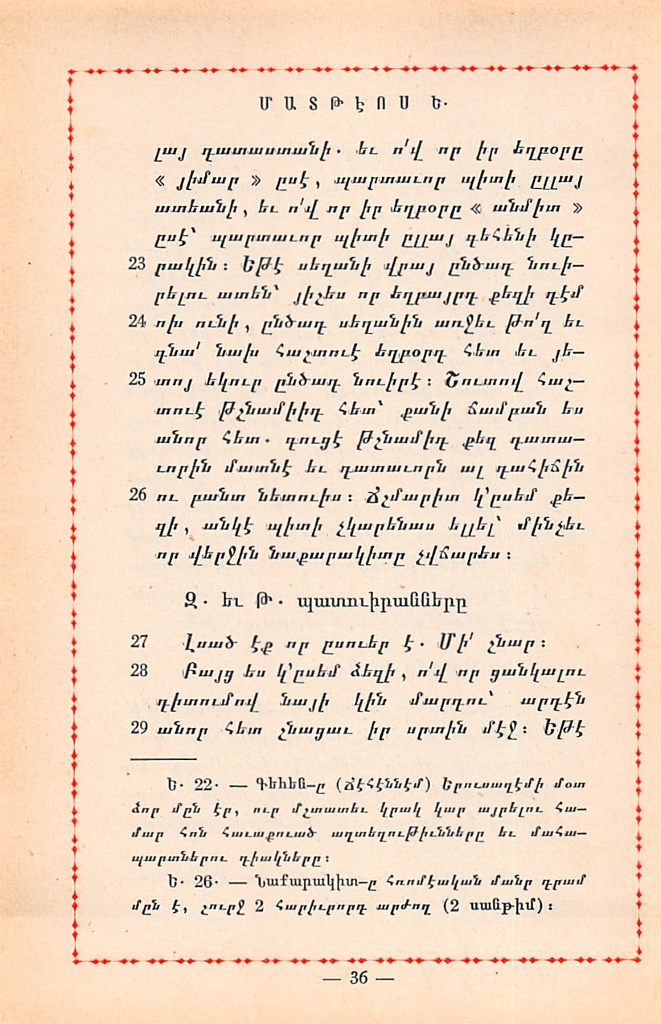 ՄԱՏԹԷՈՍ Ե.
լայ դատաստանի. եւ ո՛վ որ իր եղբօրը
« յիմար » ըսէ, պարտաւոր պիտի ըլլայ
ատեանի, եւ ո՛վ որ իր եղբօրը « անմիտ »
ըսէ՝ պարտաւոր պիտի ըլլայ գեհենի կը-
23 րակին: Եթէ սեղանի վրայ ընծադ նուի-
րելու ատեն՝ յիշես որ եղբայրդ քեզի դէմ
24 ոխ ունի, ընծադ սեղանին առջեւ թո՛ղ եւ
գնա՛ նախ հաշտուէ եղբօրդ հետ եւ յե-
25 տոյ եկուր ընծադ նուիրէ: Շուտով հաշ-
տուէ թշնամիիդ հետ՝ քանի ճամբան ես
անոր հետ. գուցէ թշնամիդ քեզ դատա-
ւորին մատնէ եւ դատաւորն ալ դահիճին
26 ու բանտ նետուիս: Ճշմարիտ կ՚ըսեմ քե-
զի, անկէ պիտի չկարենաս ելլել՝ մինչեւ
որ վերջին նաքարակիտը չվճարես:
Զ. եւ Թ. պատուիրանները
27 Լսած էք որ ըսուեր է. Մի՛ շնար:
28 Բայց ես կ՚ըսեմ ձեզի, ո՛վ որ ցանկալու
դիտումով նայի կին մարդու՝ արդէն
29 անոր հետ շնացաւ իր սրտին մէջ: Եթէ
Ե. 22. — Գեհեն-ը (ՃԷհէննէմ) Երուսաղէմի մօտ
ձոր մըն էր, ուր մշտատեւ կրակ կար այրելու հա-
մար հոն հաւաքուած աղտեղութիւնները եւ մահա-
պարտներու դիակները:
Ե. 26. — Նաքարակիտ-ը հռոմէական մանր դրամ
մըն է, շուրջ 2 հարիւրորդ արժող (2 սանթիմ):
— 36 —